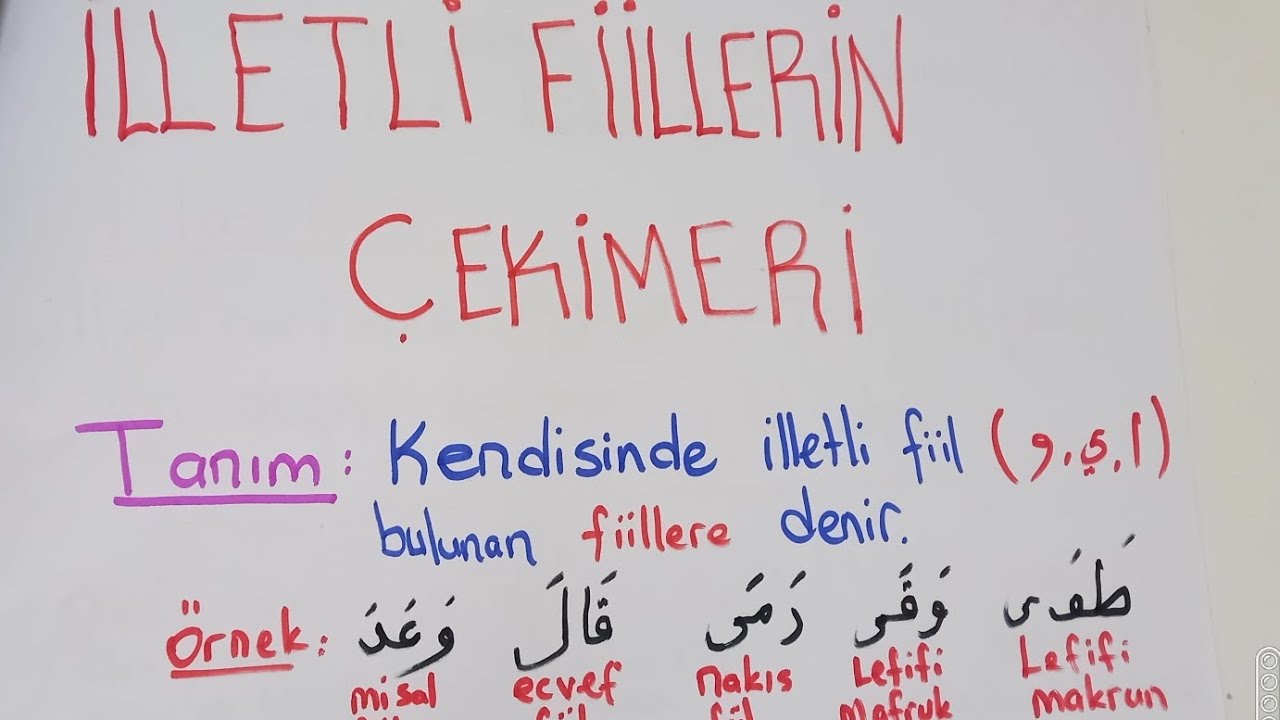 İLLETLİ FİİLLERİN
ÇEKİMERİ
Tanım: Kendisinde illetli fiil (ا . ي . و)
bulunan fiillere denir.
Örnek: وَعَدَ قَالَ رَمَى وَقَى
misal ecvef nakıs Lefifi Lefifi
fiil fiil mafruk makrun